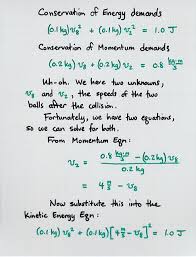 Conservation of Energy demands
(0.1 kg) v₈² + (0.1 kg) v₂² = 1.0 J
Conservation of Momentum demands
(0.2 kg) v₈ + (0.2 kg) v₂ = 0.8 kg·m/s
Uh-oh. We have two unknowns,
v₈ and v₂, the speeds of the two
balls after the collision.
Fortunately, we have two equations,
so we can solve for both.
From Momentum Eqn:
v₂ = 0.8 kg·m/s - (0.2 kg) v₈ / 0.2 kg
= 4 m/s - v₈
Now substitute this into the
Kinetic Energy Eqn:
(0.1 kg) v₈² + (0.1 kg)[4 m/s - v₈]² = 1.0 J